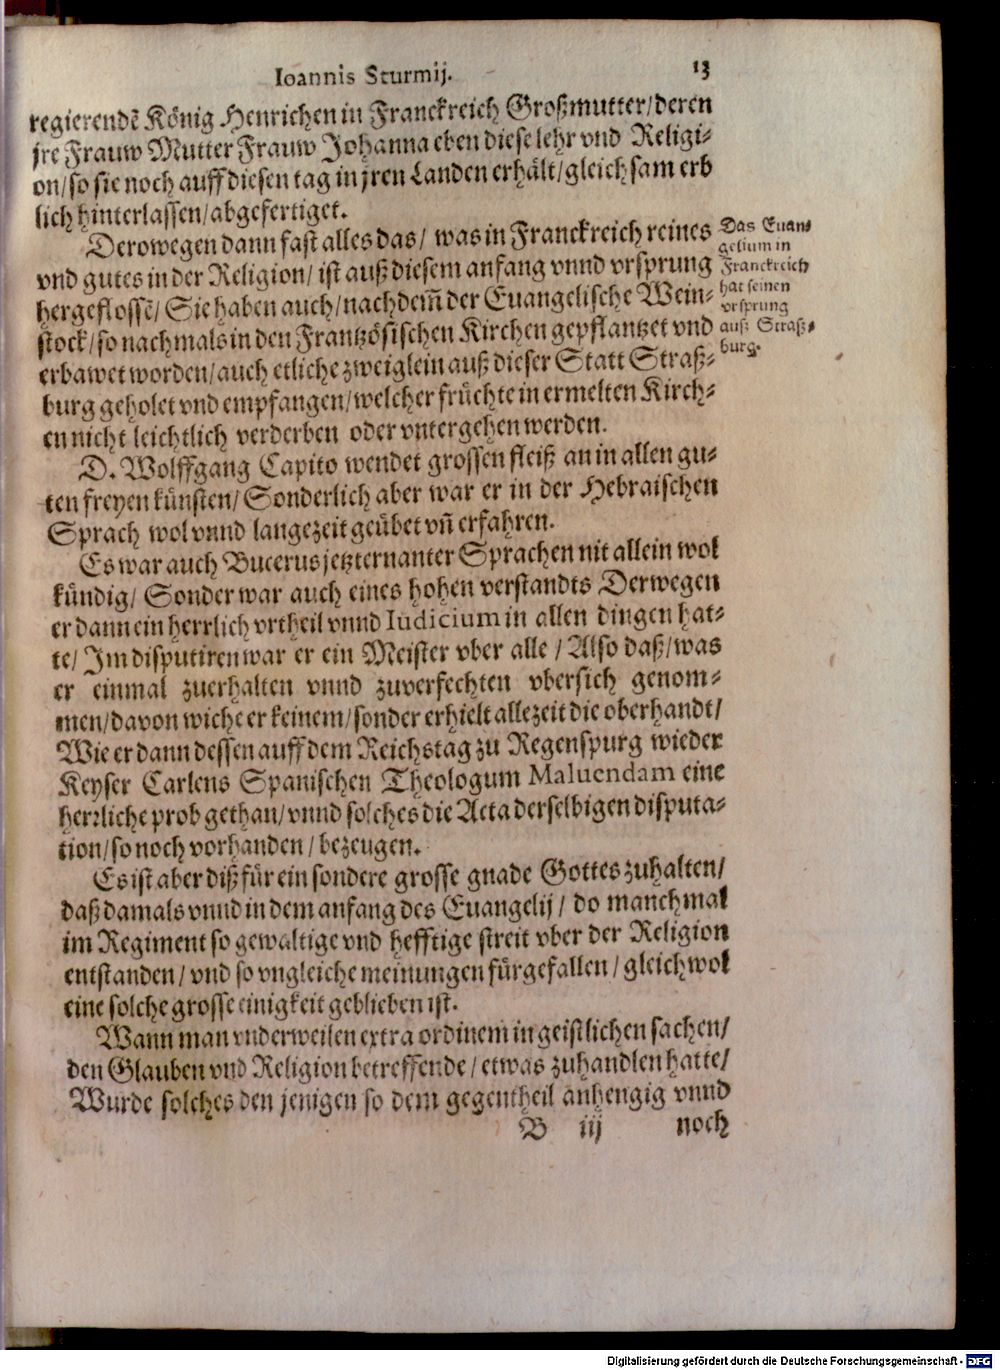 Ioannis Sturmij. 13
regierendẽ König Henrichen in Franckreich Großmutter/deren
jre Frauw Mutter Frauw Johanna eben diese lehr vnd Religi-
on/so sie noch auff diesen tag in jren Landen erhält/gleichsam erb
lich hinterlassen/abgefertiget.
Derowegen dann fast alles das/ was in Franckreich reines
vnd gutes in der Religion/ ist auß diesem anfang vnnd vrsprung
hergeflossẽ/ Sie haben auch/nachdem̃ der Euangelische Wein-
stock/so nachmals in den Frantzösischen Kirchen gepflantzet vnd
erbawet worden/auch etliche zweiglein auß dieser Statt Straß-
burg geholet vnd empfangen/welcher früchte in ermelten Kirch-
en nicht leichtlich verderben oder vntergehen werden.
Das Euan-
gelium in
Franckreich
hat seinen
vrsprung
auß Straß-
burg.
D. Wolffgang Capito wendet grossen fleiß an in allen gu-
ten freyen künsten/ Sonderlich aber war er in der Hebraischen
Sprach wol vnnd langezeit geübet vñ erfahren.
Es war auch Bucerus jetzternanter Sprachen nit allein wol
kündig/ Sonder war auch eines hohen verstandts Derwegen
er dann ein herrlich vrtheil vnnd Iudicium in allen dingen hat-
te/ Im disputiren war er ein Meister vber alle / Also daß/was
er einmal zuerhalten vnnd zuverfechten vbersich genom-
men/davon wiche er keinem/sonder erhielt allezeit die oberhandt/
Wie er dann dessen auff dem Reichstag zu Regenspurg wieder
Keyser Carlens Spanischen Theologum Maluendam eine
herrliche prob gethan/vnnd solches die Acta derselbigen disputa-
tion/so noch vorhanden / bezeugen.
Es ist aber diß für ein sondere grosse gnade Gottes zuhalten/
daß damals vnnd in dem anfang des Euangelij / do manchmal
im Regiment so gewaltige vnd hefftige streit vber der Religion
entstanden / vnd so vngleiche meinungen fürgefallen / gleichwol
eine solche grosse einigkeit geblieben ist.
Wann man vnderweilen extra ordinem in geistlichen sachen/
den Glauben vnd Religion betreffende / etwas zuhandlen hatte/
Wurde solches den jenigen so dem gegentheil anhengig vnnd
B iij noch
Digitalisierung gefördert durch die Deutsche Forschungsgemeinschaft - DFG